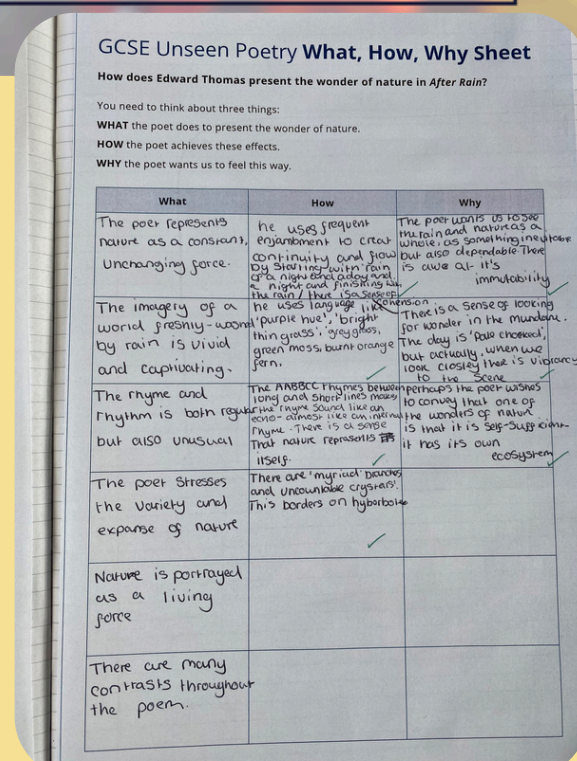 GCSE Unseen Poetry What, How, Why Sheet
How does Edward Thomas present the wonder of nature in After Rain?
You need to think about three things:
WHAT the poet does to present the wonder of nature.
HOW the poet achieves these effects.
WHY the poet wants us to feel this way.
What
How
Why
The poet represents
nature as a constant,
unchanging force.
he uses frequent
enjambment to creat
continuity and flow
by starting with 'rain
of a night and a day and
a night and finishing
the rain / there is a sense of
The poet wants us to see
the rain and nature as a
whole, as something inevitable
but also dependable There
is awe at it's
immutability
The imagery of a
world freshly-
by rain is vivid
and captivating.
he uses language like
'purple hue', 'bright
thin grass', 'grey grass,
green moss, burnt orange
fern.
There is a sense of looking
for wonder in the mundane.
The day is 'pale choked',
but actually, when we
look closley there is vibrancy
to the scene
The rhyme and
rhythm is both regular
but also unusual
The AABBCC rhymes between
long and short lines makes
the rhyme sound like an
echo- almost like an internal
rhyme. There is a sense
That nature represents
itself.
perhaps the poet wishes
to convey that one of
the wonders of nature
is that it is self-sufficient
it has its own
ecosystem
The poet stresses
the variety and
expanse of nature
There are 'myriad' branches
and uncountable crystals'.
This borders on
Nature is portrayed
as a living
force
There are many
contrasts throughout
the poem.